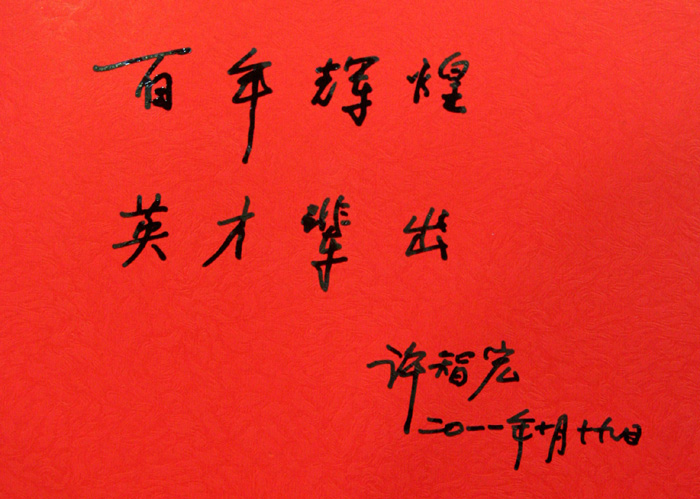 百年辉煌
英才辈出
许智宏
二〇一一年十月十九日